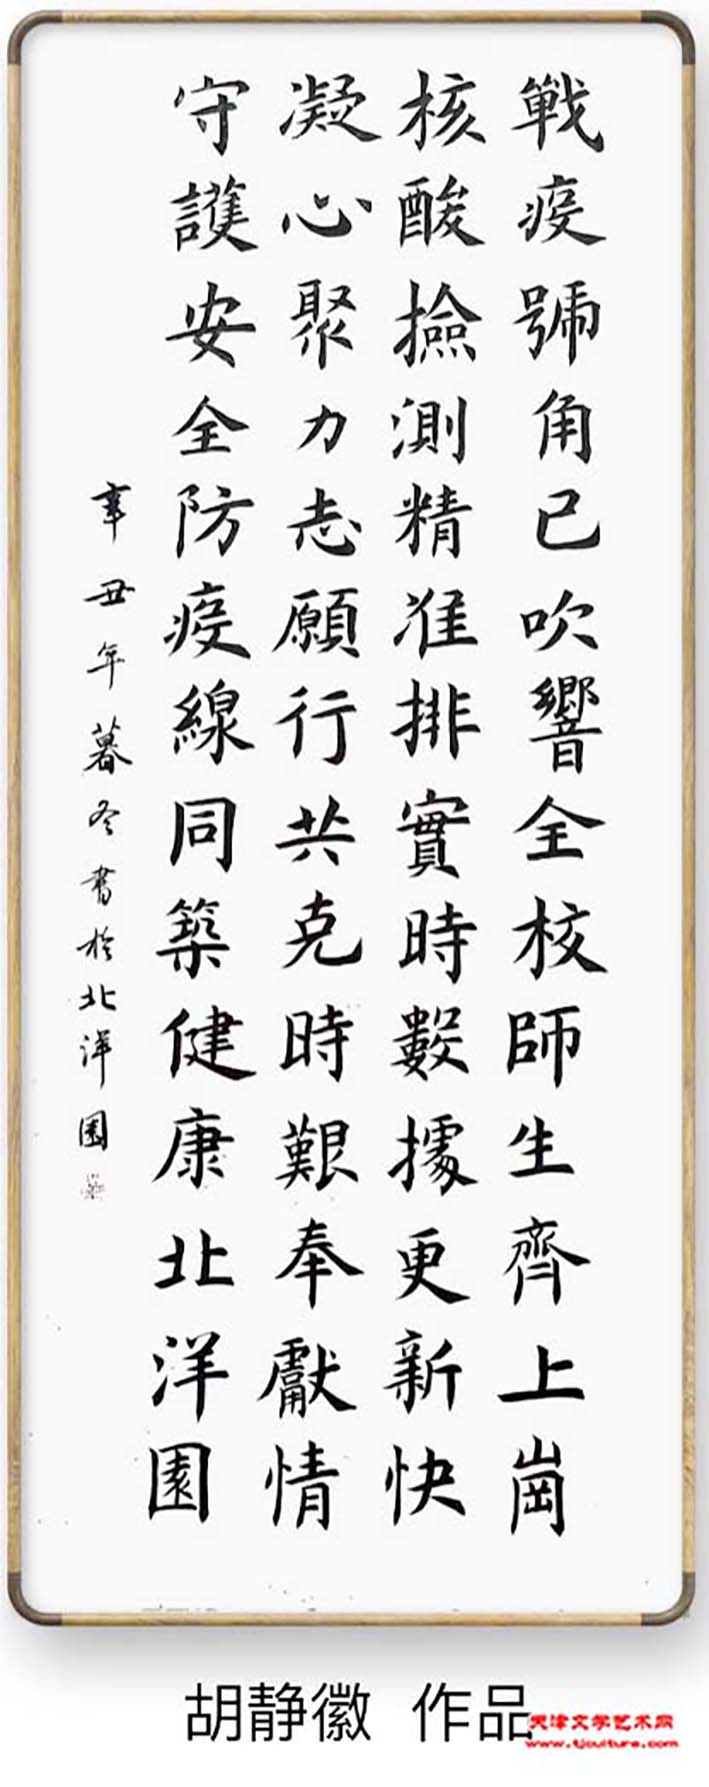 戰疫號角已吹響全校師生齊上崗
核酸撿測精准排實時數據更新快
凝心聚力志願行共克時艱奉獻情
守護安全防疫線同築健康北洋園
辛丑年暮冬書於北洋園
胡静徽 作品
天津文学艺术网
www.tjculture.com